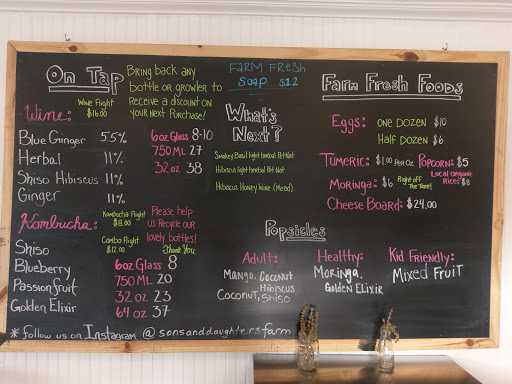 On Tap
Bring back any
bottle or growler to
Receive a discount on
your next purchase!
Wine:
Wine Flight
$16.00
Blue Ginger 5.5%
Herbal 11%
Shiso Hibiscus 11%
Ginger 11%
6oz Glass 8-10
750 ML 27
32 oz 38
Kombucha:
Kombucha Flight
$8.00
Combo Flight
$12.00
Please help
us recycle our
lovely bottles!
Thank you
Shiso
Blueberry
Passionfruit
Golden Elixir
6oz Glass 8
750 ML 20
32 oz 23
64 oz 37
* Follow us on Instagram @sonsanddaughtersfarm
Farm Fresh
Soap $12
What's
Next?
Smokey Basil light herbal Pet Nat
Hibiscus light herbal Pet Nat
Hibiscus Honey Wine (Mead)
Farm Fresh Foods
Eggs: One Dozen $10
Half Dozen $6
Tumeric: $1.00 Per Oz Popcorn: $5
Moringa: $6 Right off
The Tree!
Local Organic
Rice: $8
Cheese Board: $24.00
Popsicles
Adult:
Mango, Coconut
Hibiscus
Coconut, Shiso
Healthy:
Moringa,
Golden Elixir
Kid Friendly:
Mixed Fruit